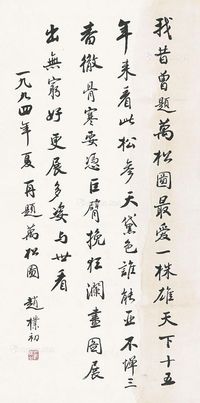 我昔曾題萬松圖最愛一株雄天下十五
年来看此松参天黛色誰能亞不憚三
書徹骨寒要憑巨臂挽狂瀾畫圖展
出無窮好更展多姿与世看
一九九四年夏再題萬松圖 趙樸初